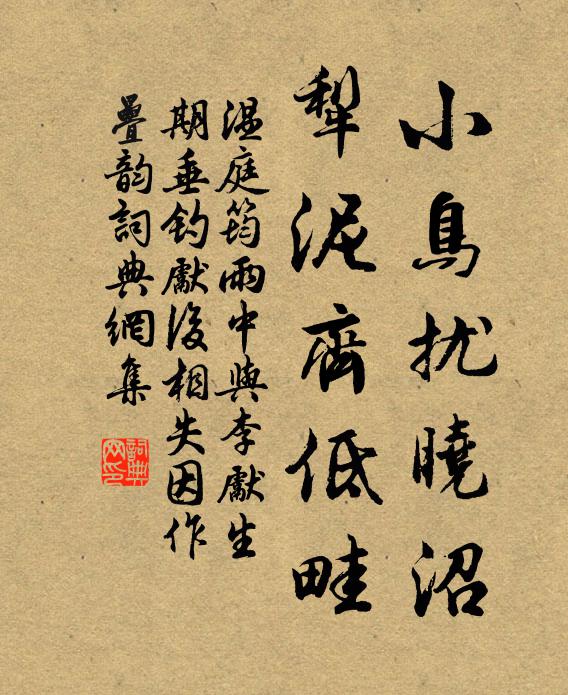 小鳥扰曉沼
犁泥齊低畦
温庭筠雨中與李獻生
期垂釣獻後相失因作
疊韵詞典網集
詞典
网印